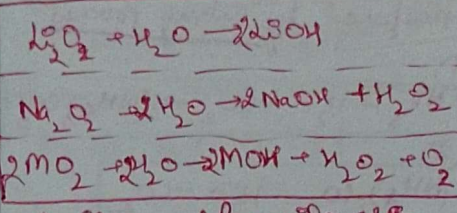 Li₂O₂ + H₂O → 2LiOH
Na₂O₂ + 2H₂O → 2NaOH + H₂O₂
2MO₂ + 2H₂O → 2MOH + H₂O₂ + O₂